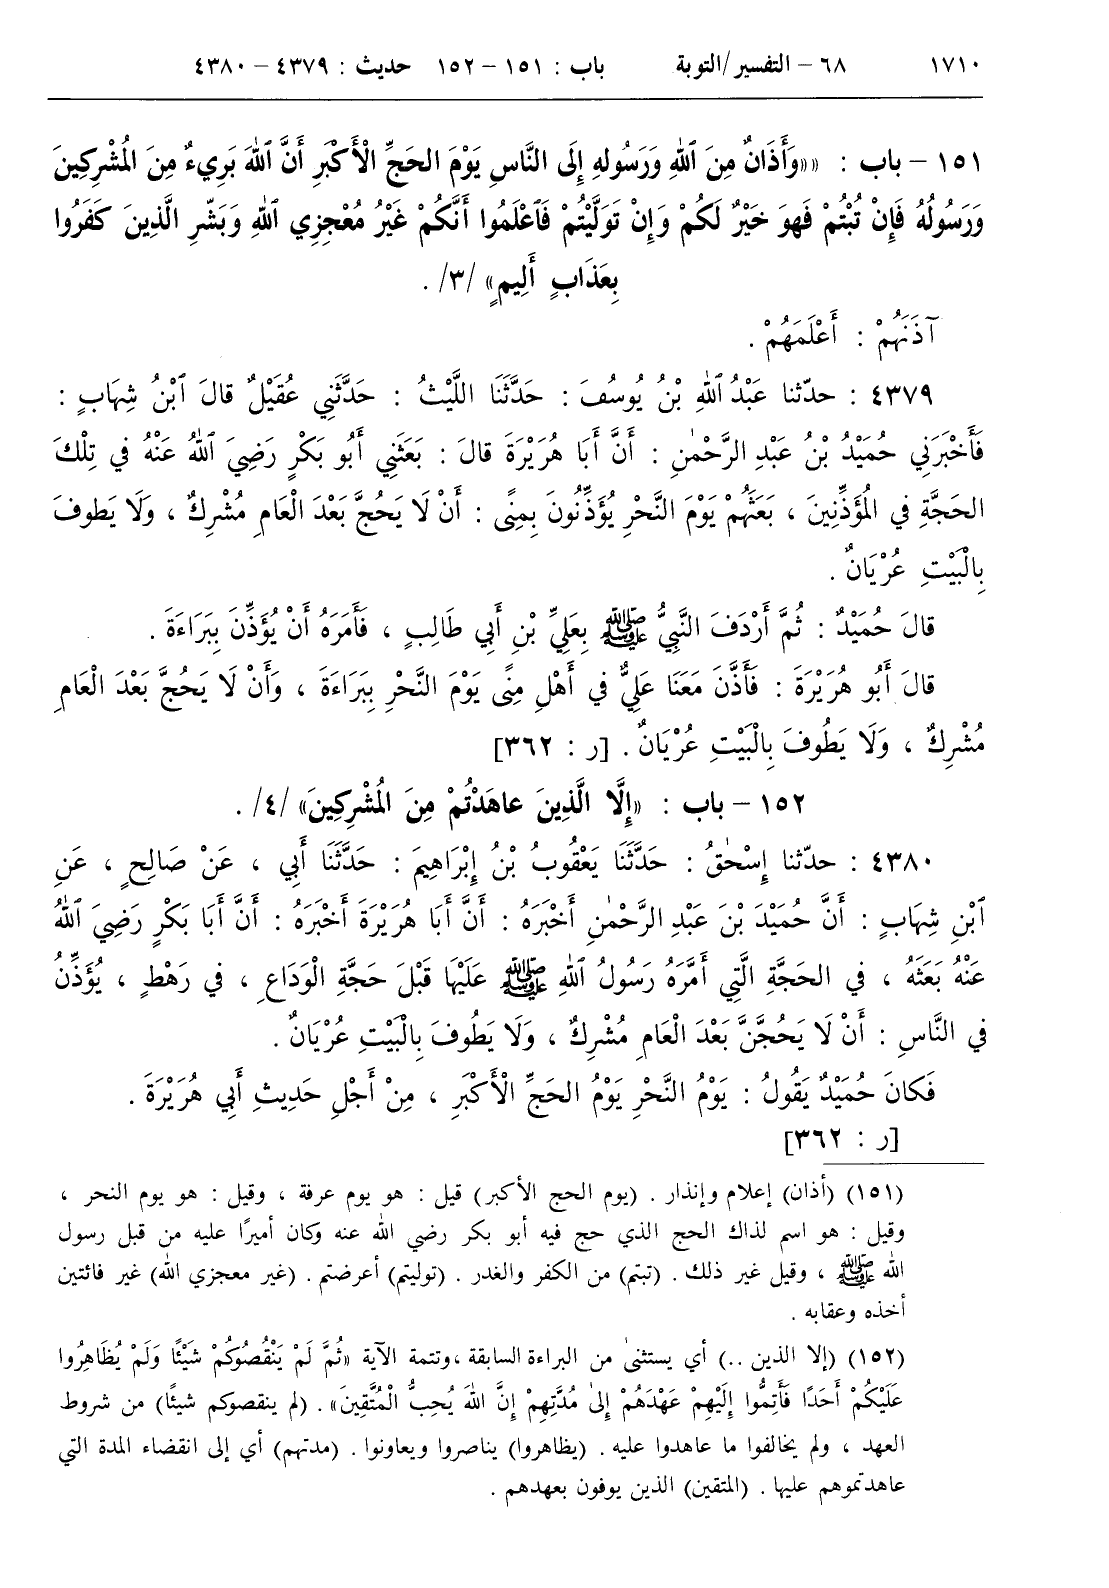 ١٧١٠ ٦٨ – التفسير/التوبة باب : ١٥١ – ١٥٢ حديث : ٤٣٧٩ – ٤٣٨٠
١٥١ – باب : «وَأَذَانٌ مِنَ ٱللهِ وَرَسُولِهِ إِلَى النَّاسِ يَوْمَ الحَجِّ الْأَكْبَرِ أَنَّ ٱللهَ بَرِيءٌ مِنَ الْمُشْرِكِينَ
وَرَسُولُهُ فَإِنْ تُبْتُمْ فَهوَ خَيْرٌ لَكُمْ وَإِنْ تَوَلَّيْتُمْ فَٱعْلَمُوا أَنَّكُمْ غَيْرُ مُعْجِزِي ٱللهِ وَبَشِّرِ الَّذِينَ كَفَرُوا
بِعَذَابٍ أَلِيمٍ» /٣/ .
آذَنَهُمْ : أَعْلَمَهُمْ .
٤٣٧٩ : حدّثنا عَبْدُ ٱللهِ بْنُ يُوسُفَ : حَدَّثَنَا اللَّيْثُ : حَدَّثَنِي عُقَيْلٌ قالَ ٱبْنُ شِهَابٍ :
فَأَخْبَرَنِي حُمَيْدُ بْنُ عَبْدِ الرَّحْمٰنِ : أَنَّ أَبَا هُرَيْرَةَ قالَ : بَعَثَنِي أَبُو بَكْرٍ رَضِيَ ٱللهُ عَنْهُ في تِلْكَ
الحَجَّةِ في الْمُؤَذِّنِينَ ، بَعَثَهُمْ يَوْمَ النَّحْرِ يُؤَذِّنُونَ بِمِنًى : أَنْ لَا يَحُجَّ بَعْدَ الْعَامِ مُشْرِكٌ ، وَلَا يَطوفَ
بِالْبَيْتِ عُرْيَانٌ .
قالَ حُمَيْدٌ : ثُمَّ أَرْدَفَ النَّبِيُّ ﷺ بِعَلِيِّ بْنِ أَبِي طَالِبٍ ، فَأَمَرَهُ أَنْ يُؤَذِّنَ بِبَرَاءَةَ .
قالَ أَبُو هُرَيْرَةَ : فَأَذَّنَ مَعَنَا عَلِيٌّ في أَهْلِ مِنًى يَوْمَ النَّحْرِ بِبَرَاءَةَ ، وَأَنْ لَا يَحُجَّ بَعْدَ الْعَامِ
مُشْرِكٌ ، وَلَا يَطُوفَ بِالْبَيْتِ عُرْيَانٌ . [ر : ٣٦٢]
١٥٢ – باب : «إِلَّا الَّذِينَ عاهَدْتُمْ مِنَ الْمُشْرِكِينَ» /٤/ .
٤٣٨٠ : حدّثنا إِسْحٰقُ : حَدَّثَنَا يَعْقُوبُ بْنُ إِبْرَاهِيمَ : حَدَّثَنَا أَبِي ، عَنْ صَالِحٍ ، عَنِ
ٱبْنِ شِهَابٍ : أَنَّ حُمَيْدَ بْنَ عَبْدِ الرَّحْمٰنِ أَخْبَرَهُ : أَنَّ أَبَا هُرَيْرَةَ أَخْبَرَهُ : أَنَّ أَبَا بَكْرٍ رَضِيَ ٱللهُ
عَنْهُ بَعَثَهُ ، في الحَجَّةِ الَّتِي أَمَّرَهُ رَسُولُ ٱللهِ ﷺ عَلَيْهَا قَبْلَ حَجَّةِ الْوَدَاعِ ، في رَهْطٍ ، يُؤَذِّنُ
في النَّاسِ : أَنْ لَا يَحُجَّنَّ بَعْدَ الْعَامِ مُشْرِكٌ ، وَلَا يَطُوفَ بِالْبَيْتِ عُرْيَانٌ .
فَكانَ حُمَيْدٌ يَقُولُ : يَوْمُ النَّحْرِ يَوْمُ الحَجِّ الْأَكْبَرِ ، مِنْ أَجْلِ حَدِيثِ أَبِي هُرَيْرَةَ .
[ر : ٣٦٢]
(١٥١) (أذان) إعلام وإنذار . (يوم الحج الأكبر) قيل : هو يوم عرفة ، وقيل : هو يوم النحر ،
وقيل : هو اسم لذاك الحج الذي حج فيه أبو بكر رضي الله عنه وكان أميرًا عليه من قبل رسول
الله ﷺ ، وقيل غير ذلك . (تبتم) من الكفر والغدر . (توليتم) أعرضتم . (غير معجزي الله) غير فائتين
أخذه وعقابه .
(١٥٢) (إلا الذين ..) أي يستثنىٰ من البراءة السابقة ،وتتمة الآية «ثُمَّ لَمْ يَنْقُصُوكُمْ شَيْئًا وَلَمْ يُظَاهِرُوا
عَلَيْكُمْ أَحَدًا فَأَتِمُّوا إِلَيْهِمْ عَهْدَهُمْ إِلىٰ مُدَّتِهِمْ إِنَّ اللهَ يُحِبُّ الْمُتَّقِينَ» . (لم ينقصوكم شيئًا) من شروط
العهد ، ولم يخالفوا ما عاهدوا عليه . (يظاهروا) يناصروا ويعاونوا . (مدتهم) أي إلى انقضاء المدة التي
عاهدتموهم عليها . (المتقين) الذين يوفون بعهدهم .